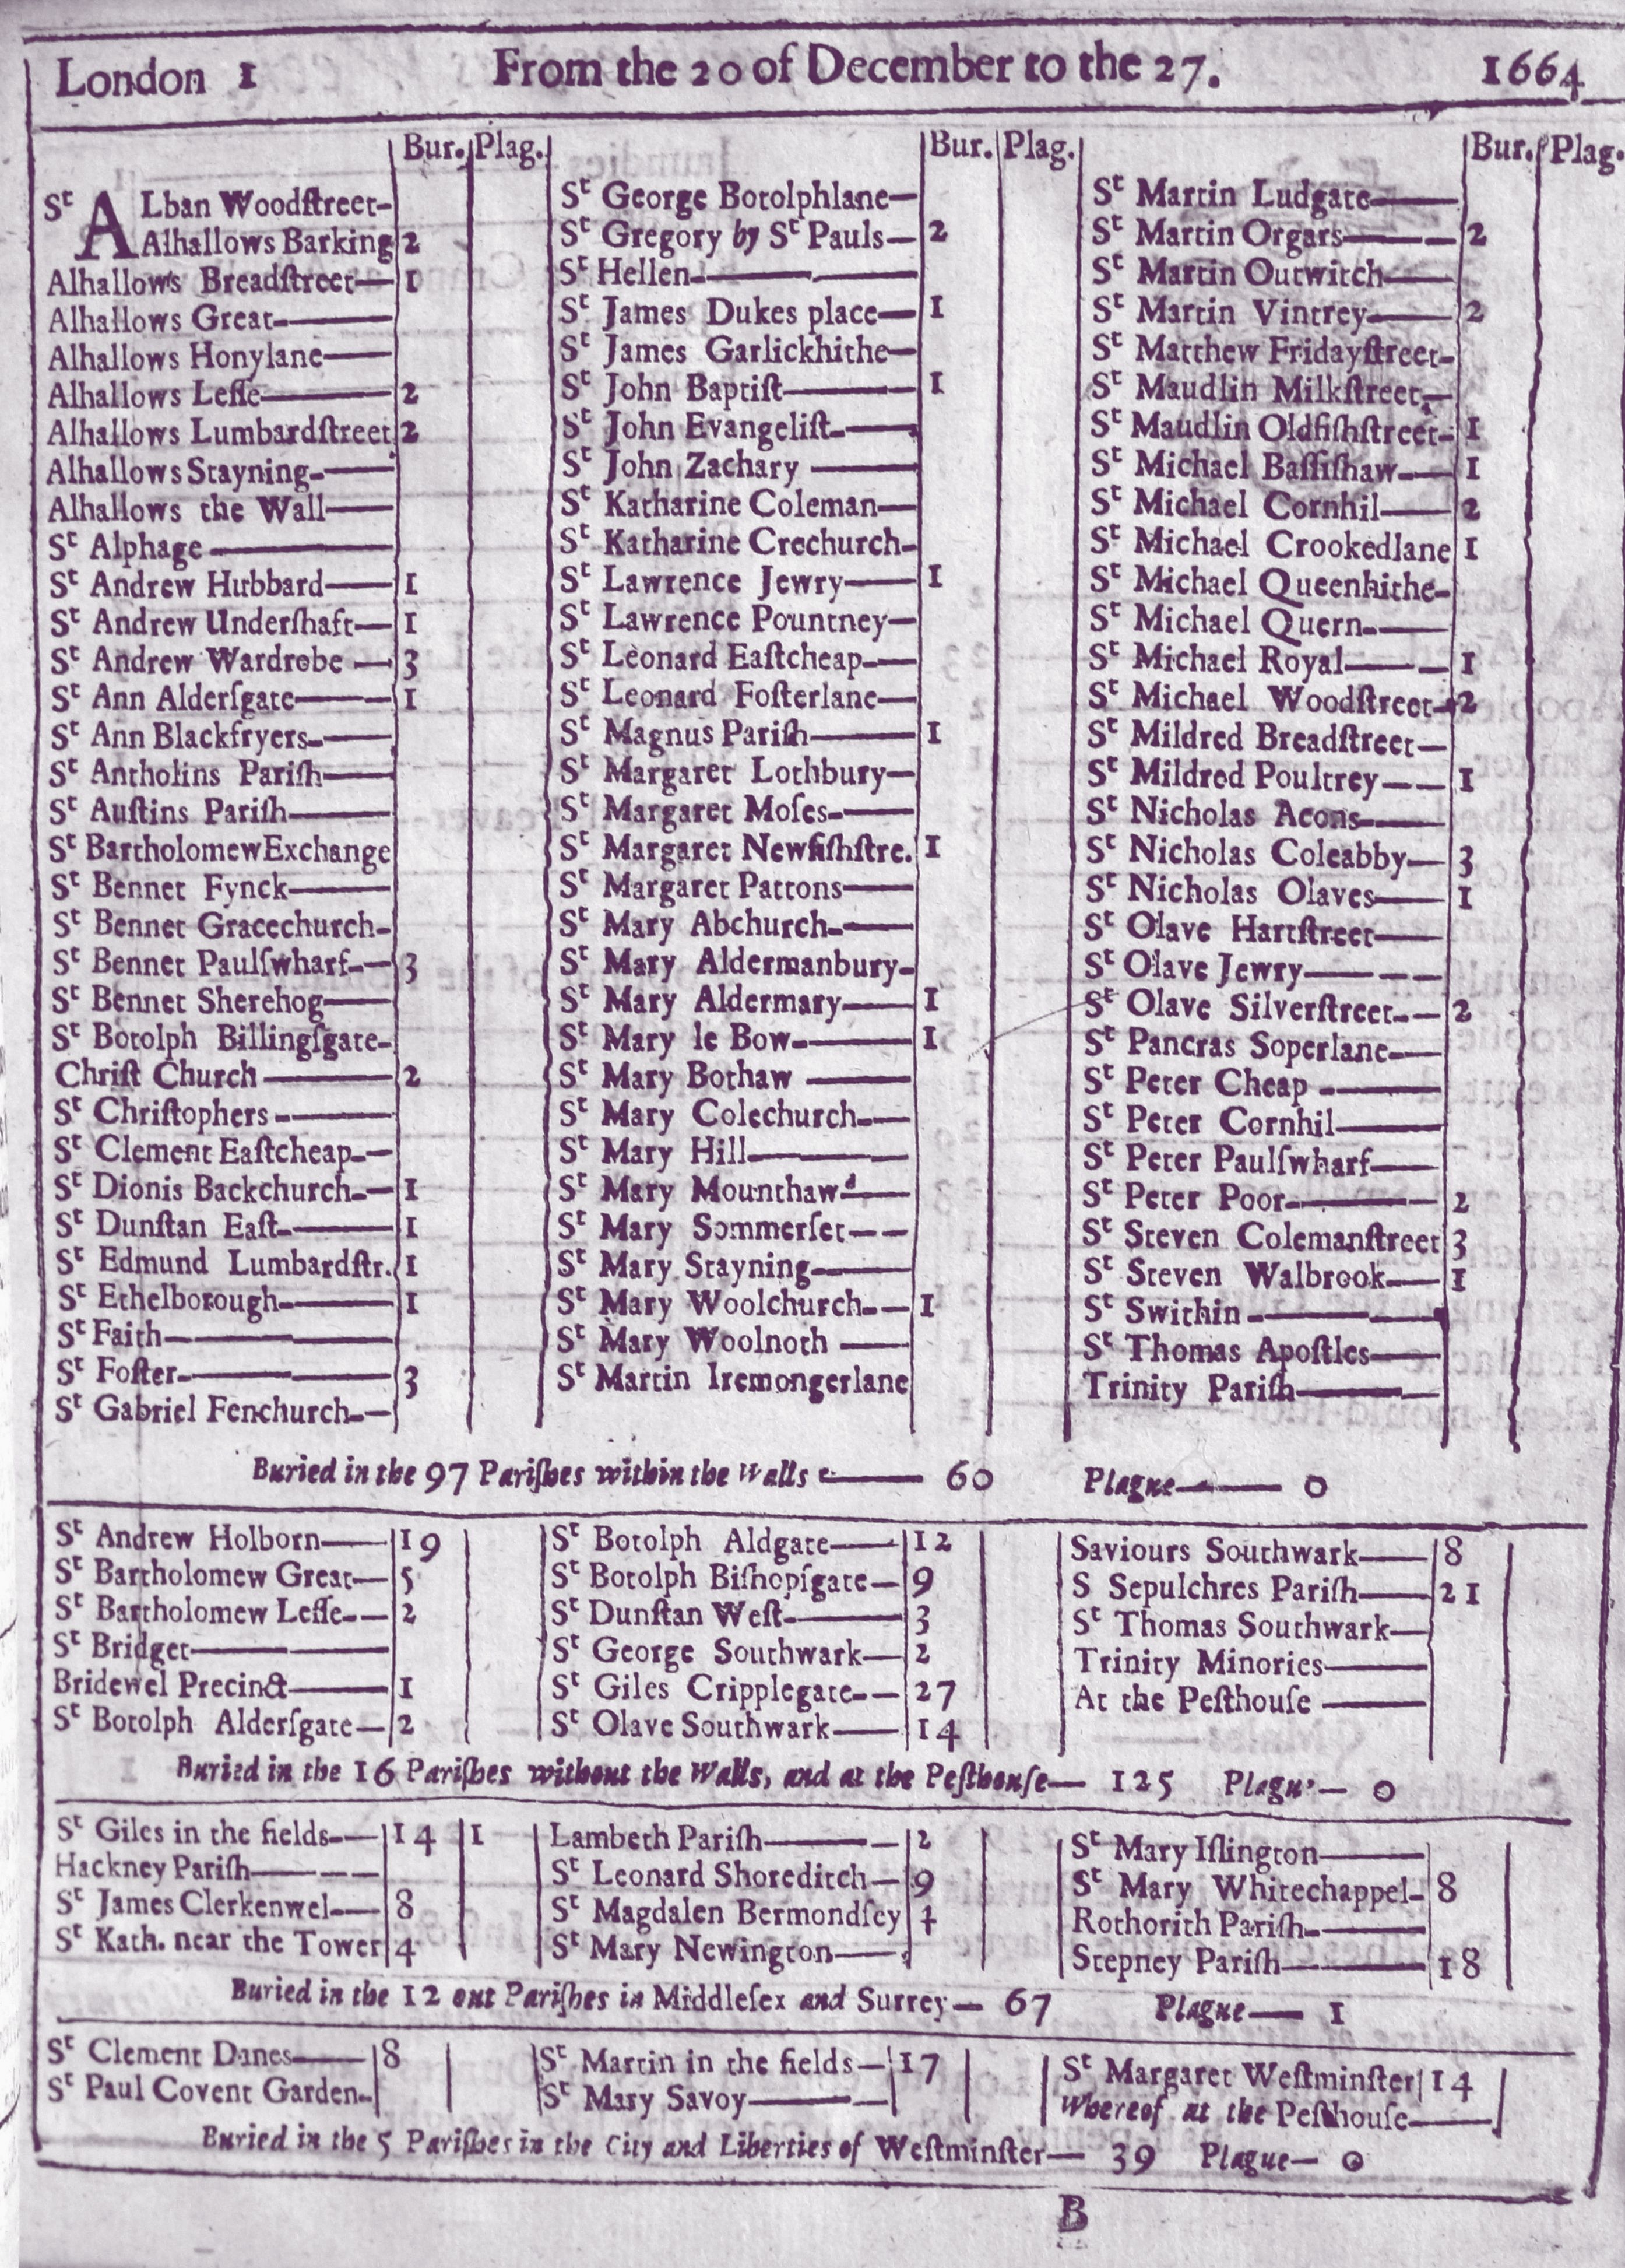 London 1 From the 20 of December to the 27. 1664
Bur. Plag. Bur. Plag. Bur. Plag.
St ALban Woodſtreet-
Alhallows Barking 2
Alhallows Breadſtreet— 1
Alhallows Great-—
Alhallows Honylane—
Alhallows Leſſe— 2
Alhallows Lumbardſtreet 2
Alhallows Stayning-—
Alhallows the Wall—
St Alphage —
St Andrew Hubbard— 1
St Andrew Underſhaft— 1
St Andrew Wardrobe — 3
St Ann Alderſgate— 1
St Ann Blackfryers-—
St Antholins Pariſh—
St Auſtins Pariſh—
St Bartholomew Exchange
St Bennet Fynck—
St Bennet Gracechurch-
St Bennet Paulſwharf-— 3
St Bennet Sherehog—
St Botolph Billingſgate-
Chriſt Church — 2
St Chriſtophers -—
St Clement Eaſtcheap-—
St Dionis Backchurch-— 1
St Dunſtan Eaſt-— 1
St Edmund Lumbardſtr. 1
St Ethelborough-— 1
St Faith—
St Foſter-— 3
St Gabriel Fenchurch-—
St George Botolphlane—
St Gregory by St Pauls— 2
St Hellen-—
St James Dukes place— 1
St James Garlickhithe—
St John Baptiſt— 1
St John Evangeliſt-—
St John Zachary —
St Katharine Coleman—
St Katharine Crechurch-
St Lawrence Jewry— 1
St Lawrence Pountney—
St Leonard Eaſtcheap-—
St Leonard Foſterlane—
St Magnus Pariſh— 1
St Margaret Lothbury—
St Margaret Moſes-—
St Margaret Newfiſhſtre. 1
St Margaret Pattons—
St Mary Abchurch-—
St Mary Aldermanbury-
St Mary Aldermary— 1
St Mary le Bow-— 1
St Mary Bothaw —
St Mary Colechurch-—
St Mary Hill—
St Mary Mounthaw-—
St Mary Sommerſet——
St Mary Stayning—
St Mary Woolchurch-— 1
St Mary Woolnoth —
St Martin Iremongerlane
St Martin Ludgate—
St Martin Orgars— 2
St Martin Outwitch—
St Martin Vintrey— 2
St Matthew Fridayſtreet-
St Maudlin Milkſtreet—
St Maudlin Oldfiſhſtreet- 1
St Michael Baſſiſhaw-— 1
St Michael Cornhil— 2
St Michael Crookedlane 1
St Michael Queenhithe-
St Michael Quern-—
St Michael Royal— 1
St Michael Woodſtreet- 2
St Mildred Breadſtreet—
St Mildred Poultrey—— 1
St Nicholas Acons—
St Nicholas Coleabby— 3
St Nicholas Olaves— 1
St Olave Hartſtreet—
St Olave Jewry—
St Olave Silverſtreet-— 2
St Pancras Soperlane-—
St Peter Cheap -—
St Peter Cornhil—
St Peter Paulſwharf—
St Peter Poor-— 2
St Steven Colemanſtreet 3
St Steven Walbrook— 1
St Swithin -—
St Thomas Apoſtles—
Trinity Pariſh—
Buried in the 97 Pariſhes within the Walls — 60 Plague— 0
St Andrew Holborn— 19
St Bartholomew Great— 5
St Bartholomew Leſſe-— 2
St Bridget—
Bridewel Precinct— 1
St Botolph Alderſgate— 2
St Botolph Aldgate— 12
St Botolph Biſhopſgate— 9
St Dunſtan Weſt-— 3
St George Southwark— 2
St Giles Cripplegate-— 27
St Olave Southwark— 14
Saviours Southwark— 8
S Sepulchres Pariſh— 21
St Thomas Southwark—
Trinity Minories—
At the Peſthouſe —
Buried in the 16 Pariſhes without the Walls, and at the Peſthouſe— 125 Plague— 0
St Giles in the fields-— 14 1
Hackney Pariſh—
St James Clerkenwel-— 8
St Kath. near the Tower 4
Lambeth Pariſh— 2
St Leonard Shoreditch— 9
St Magdalen Bermondſey 4
St Mary Newington—
St Mary Iſlington—
St Mary Whitechappel- 8
Rothorith Pariſh-—
Stepney Pariſh— 18
Buried in the 12 out Pariſhes in Middleſex and Surrey— 67 Plague— 1
St Clement Danes— 8
St Paul Covent Garden-
St Martin in the fields— 17
St Mary Savoy—
St Margaret Weſtminſter 14
Whereof at the Peſthouſe—
Buried in the 5 Pariſhes in the City and Liberties of Weſtminſter— 39 Plague— 0
B